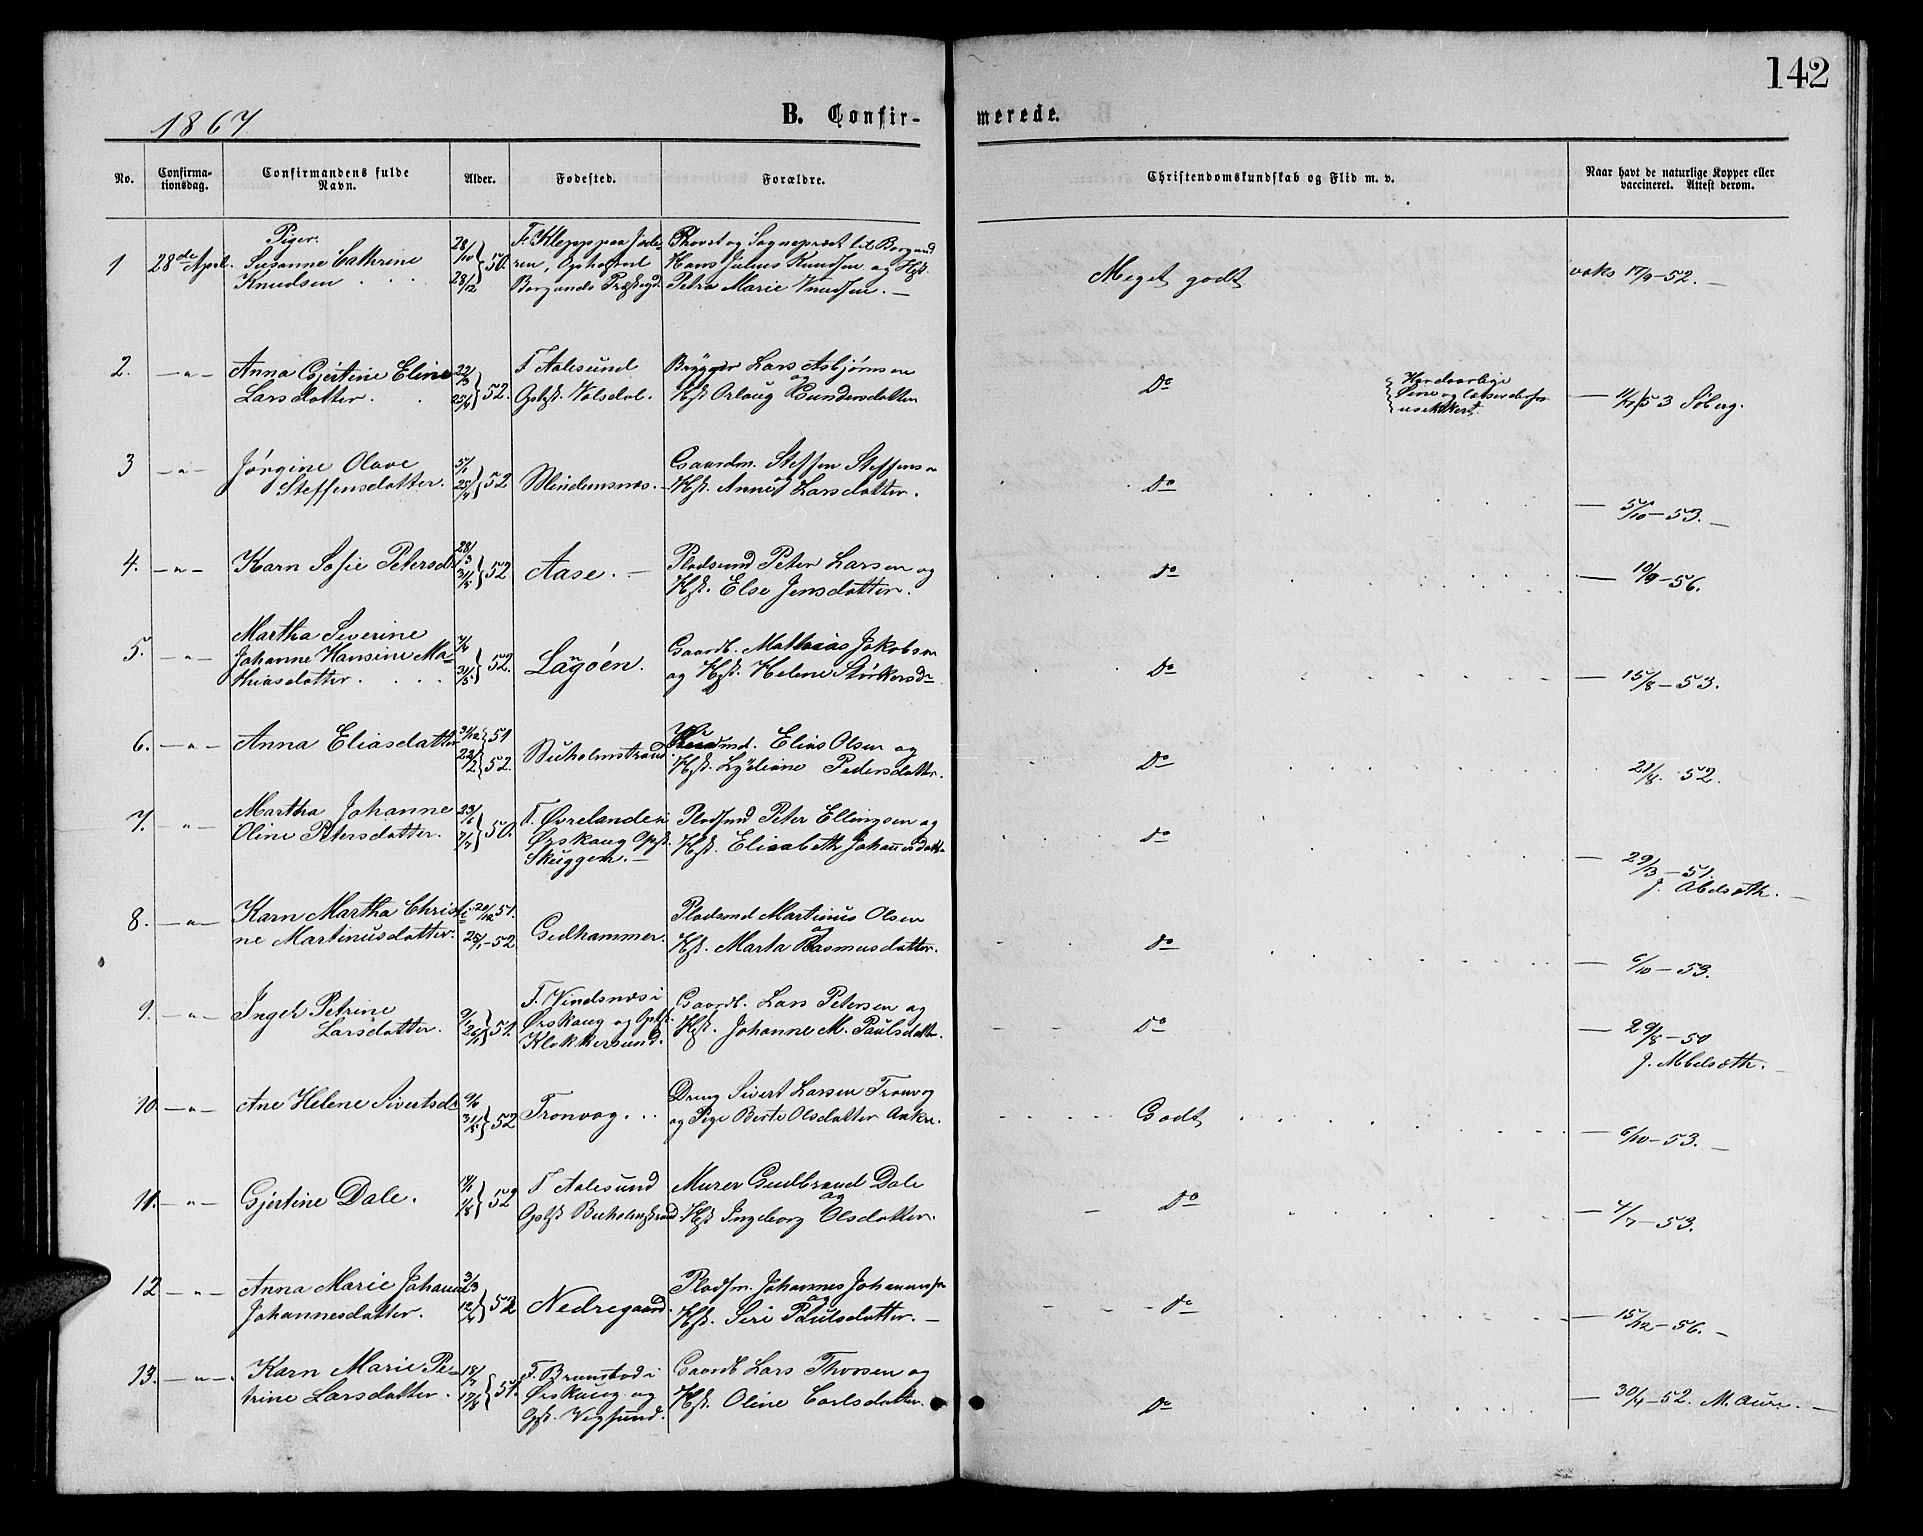 142
1867
B. Confir-
merede.
No.
Confirma-
tionsdag.
Confirmandens fulde
Navn.
Alder.
Fødested.
Forældre.
Christendomskundskab og Flid m. v.
Naar havt de naturlige Kopper eller
vaccineret. Attest derom.
Piger.
1 28de April. Susanne Cathrine
Knudsen
28/10 28/12 50.
F. Klepp paa Jæde-
ren, Opholdssted
Borgunds Præstegd.
Provst og Sognepræst til Borgund
Hans Julius Knudsen og Hst.
Petra Marie Knudsen. —
Meget godt
vaks 17/9-52. —
2. —„— Anna Gjertine Eline
Larsdatter.
22/3 25/4 52.
F Aalesund
Ophst. Volsdal.
Brygger Lars Asbjørnsen
og
Hst Orlaug Gundersdatter
Do
Har daarlige
Øine og læser derfor
usikkert.
— 11/7 53 Søberg.
3 —„— Jørgine Olave
Steffensdatter.
5/1 25/4 52
Blindemsnæs. —
Gaardm. Steffen Steffensen
Hst. Anne Larsdatter.
Do
— 5/10-53. —
4. —„— Karn Sofie Petersd.
28/3 31/5 52
Aase. —
Pladsmd Peter Larsen og
Hst. Else Jensdatter.
Do
— 10/9-56.
5. —„— Martha Severine
Johanne Hansine Ma-
thiasdatter.
31/5 52.
Langöen.
Gaardb. Mathias Jakobsen
og Hst. Helene Størkersdr
Do
— 15/8-53.
6. —„— Anna Eliasdatter
51
22/2 52.
Buholmstrand.
Elias Olsen og
Hst. Lydiane Pedersdatter.
Do
52.
7. —„— Martha Johanne
Oline Petersdatter.
23/6 7/7 50.
F. Øvrelanden
Ørskoug Opst.
Skuggen. —
Pladsmd Peter Ellingsen og
Hst. Elisabeth Johannesdatter
Do
— 29/3-51.
J. Abelseth. —
8. —„— Karn Martha Christi-
ne Martinusdatter.
20/12 51.
25/1-52
Gedhammer.
Pladsmd Martinus Olsen
og
Hst. Marta Rasmusdatter.
Do
— 6/10-53.
9. —„— Inger Petrine
Larsdatter.
51.
F. Vindsnæs i
Ørskoug og Opst.
Klokkersund.
Gaardb. Lars Petersen og
Hst. Johanne M. Paulsdatter.
Do
— 29/8-50
J. Abelseth. —
10. —„— Ane Helene Sivertsdr
31/5 52
Tronvag. . .
Dreng Sivert Larsen Tronvog
og Pige Berte Olsdatter Aakre.
Godt
— 6/10-53. —
11. —„— Gjertine Dale.
52
F Aalesund
Opst Buholmstrand
Murer Gudbrand Dale
og
Hst Ingeborg Olsdatter.
Do
— 4/7-53.
12 —„— Anna Marie Johanna
Johannesdatter.
3/3 12/4 52
Nedregaard.
Pladsm. Johannes Johannessen
og
Hst. Siri Paulsdatter. —
Do
— 15/12-56. —
13. —„—. Karn Marie Pe-
trine Larsdatter.
18/7 17/8 51.
F. Brunstad i
Ørskoug og
Opst. Vegsund.
Gaardb Lars Thossen og
Hst. Oline Carlsdatter.
Do
— 30/4-52. M. Aure. —